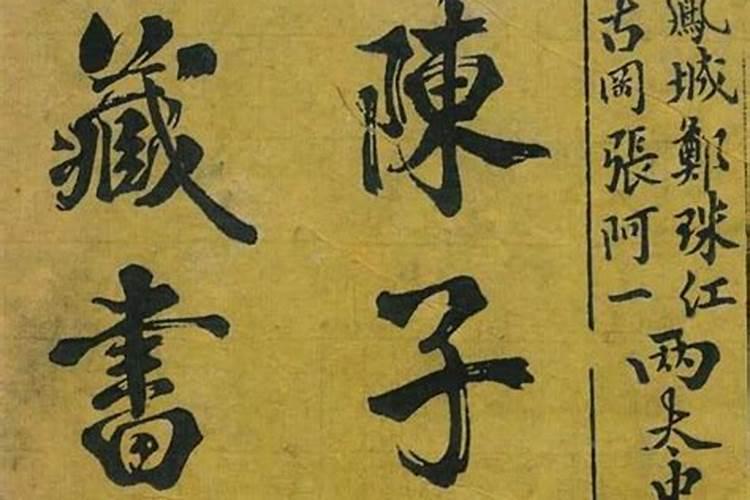 鳳城鄭珠紅
古岡張阿一
兩夫
陳子
藏書